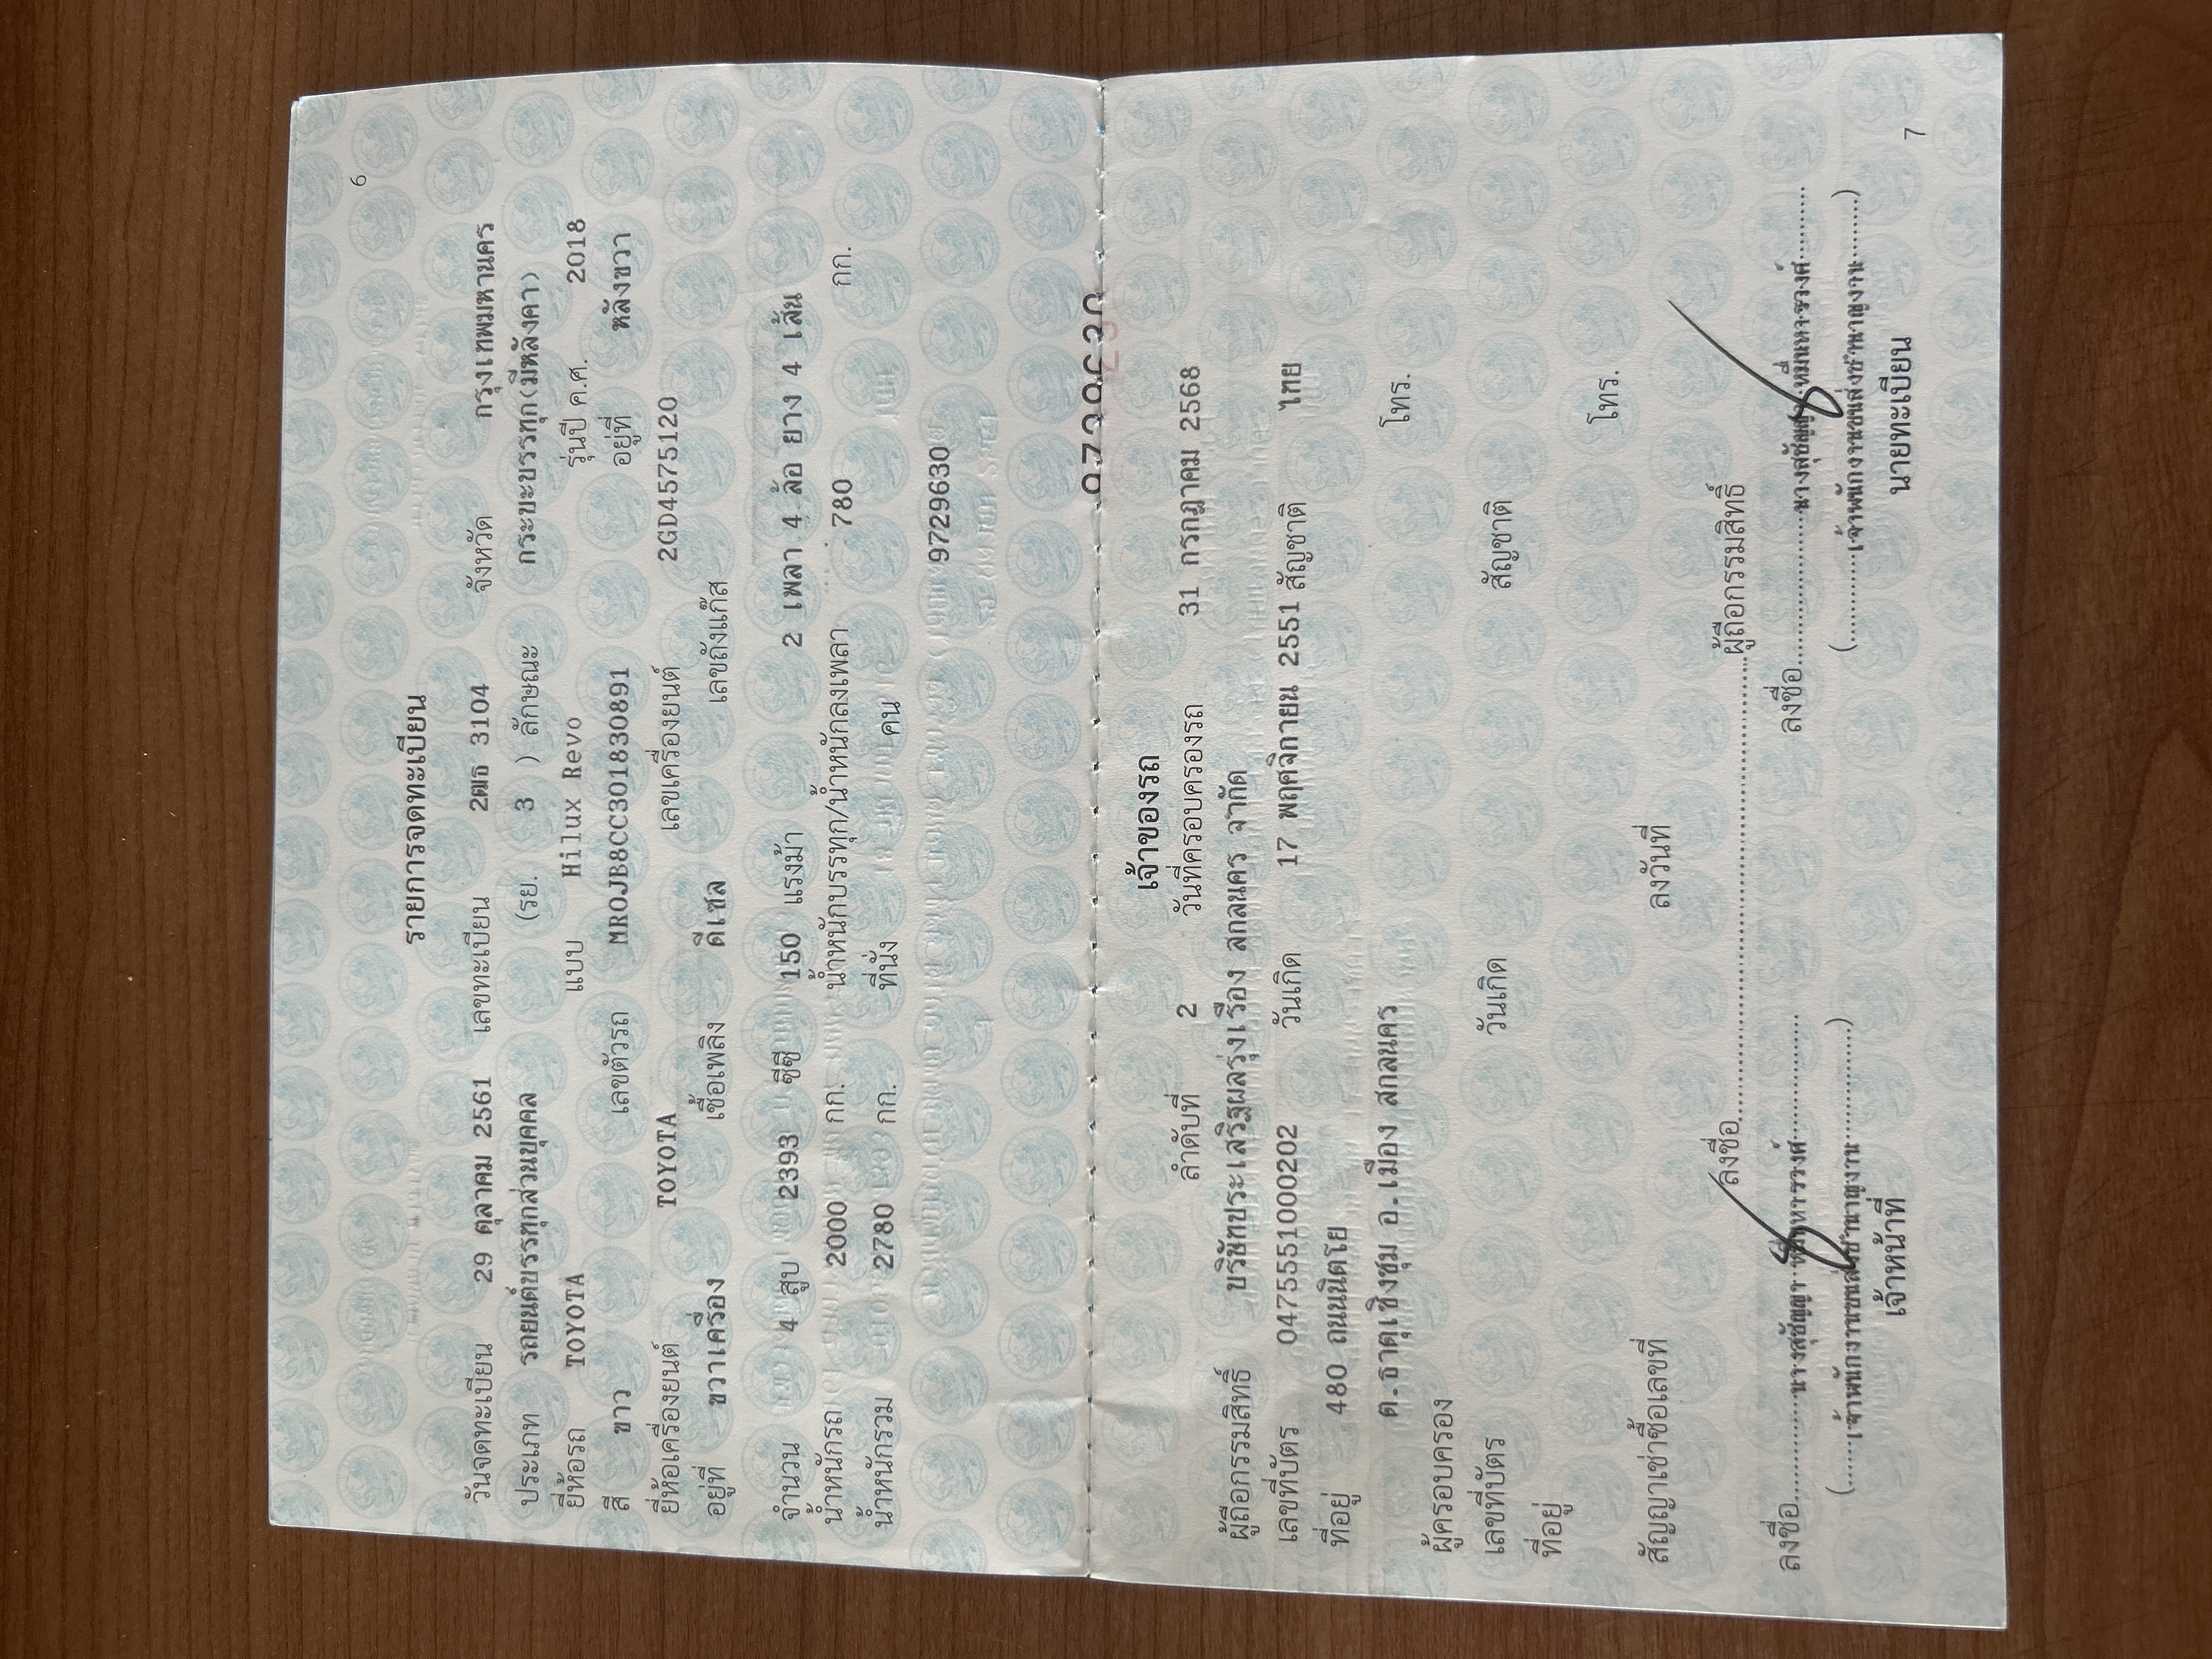 6
รายการจดทะเบียน
วันจดทะเบียน 29 ตุลาคม 2561 เลขทะเบียน 2ฒธ 3104 จังหวัด กรุงเทพมหานคร
ประเภท รถยนต์บรรทุกส่วนบุคคล (รย. 3 ) ลักษณะ กระบะบรรทุก(มีหลังคา)
ยี่ห้อรถ TOYOTA แบบ Hilux Revo รุ่นปี ค.ศ. 2018
สี ขาว เลขตัวรถ MROJB8CC301830891 อยู่ที่ หลังขวา
ยี่ห้อเครื่องยนต์ TOYOTA เลขเครื่องยนต์ 2GD4575120
อยู่ที่ ขวาเครื่อง เชื้อเพลิง ดีเซล เลขถังแก๊ส
จำนวน 4 สูบ 2393 ซีซี 150 แรงม้า 2 เพลา 4 ล้อ ยาง 4 เส้น
น้ำหนักรถ 2000 กก. น้ำหนักบรรทุก/น้ำหนักลงเพลา 780 กก.
น้ำหนักรวม 2780 กก. ที่นั่ง คน
9729630
เจ้าของรถ
ลำดับที่ 2 วันที่ครอบครองรถ 31 กรกฎาคม 2568
ผู้ถือกรรมสิทธิ์ บริษัทประเสริฐผลรุ่งเรือง สกลนคร จำกัด
เลขที่บัตร 0475551000202 วันเกิด 17 พฤศจิกายน 2551 สัญชาติ ไทย
ที่อยู่ 480 ถนนนิตโย
ต.ธาตุเชิงชุม อ.เมือง สกลนคร โทร.
ผู้ครอบครอง
เลขที่บัตร วันเกิด สัญชาติ
ที่อยู่ โทร.
สัญญาเช่าซื้อเลขที่ ลงวันที่
ลงชื่อ ผู้ถือกรรมสิทธิ์
ลงชื่อ นางสุชัญญา หมื่นหารวงศ์ ลงชื่อ นางสุชัญญา หมื่นหารวงศ์
(เจ้าพนักงานขนส่งชำนาญงาน) (เจ้าพนักงานขนส่งชำนาญงาน)
เจ้าหน้าที่ นายทะเบียน
7